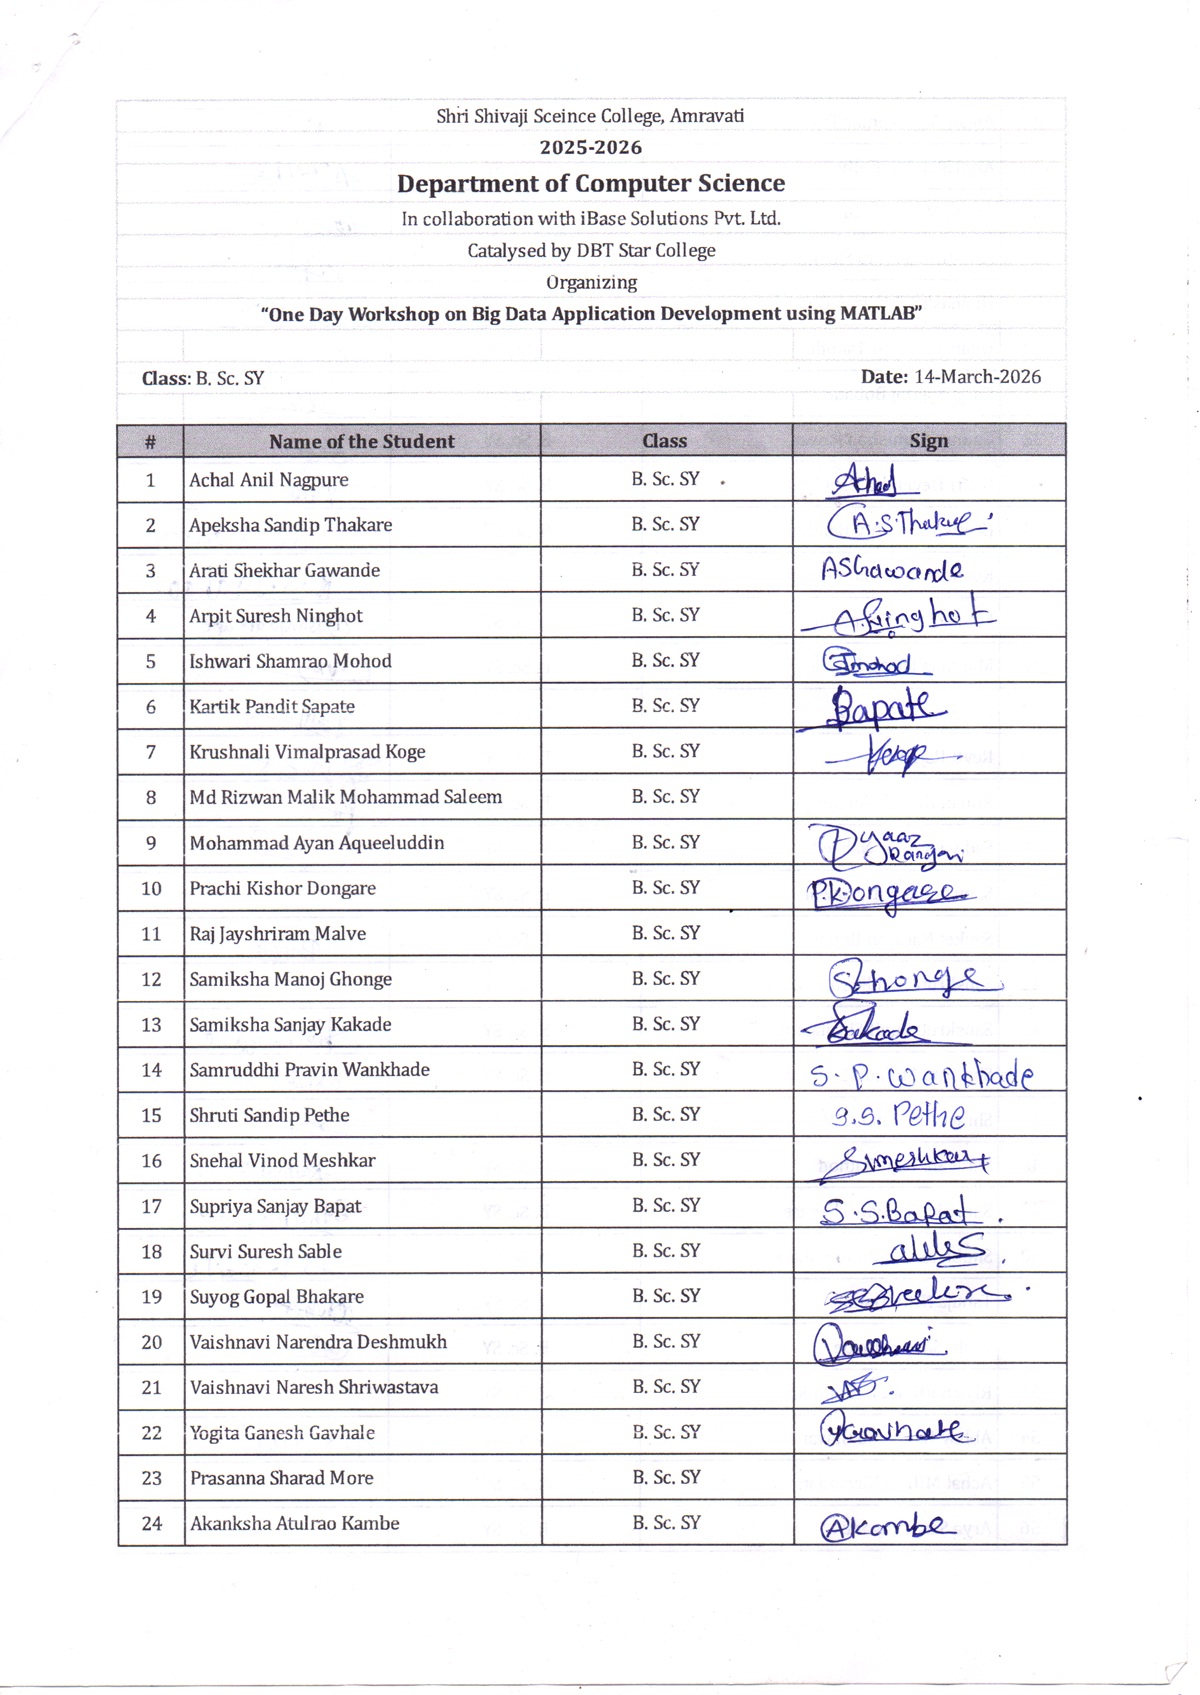 Shri Shivaji Sceince College, Amravati
2025-2026
Department of Computer Science
In collaboration with iBase Solutions Pvt. Ltd.
Catalysed by DBT Star College
Organizing
“One Day Workshop on Big Data Application Development using MATLAB”
Class: B. Sc. SY Date: 14-March-2026
# Name of the Student Class Sign
1 Achal Anil Nagpure B. Sc. SY Achal
2 Apeksha Sandip Thakare B. Sc. SY A.S.Thakare
3 Arati Shekhar Gawande B. Sc. SY ASGawande
4 Arpit Suresh Ninghot B. Sc. SY
5 Ishwari Shamrao Mohod B. Sc. SY
6 Kartik Pandit Sapate B. Sc. SY
7 Krushnali Vimalprasad Koge B. Sc. SY
8 Md Rizwan Malik Mohammad Saleem B. Sc. SY
9 Mohammad Ayan Aqueeluddin B. Sc. SY
10 Prachi Kishor Dongare B. Sc. SY P.K.Dongare
11 Raj Jayshriram Malve B. Sc. SY
12 Samiksha Manoj Ghonge B. Sc. SY
13 Samiksha Sanjay Kakade B. Sc. SY
14 Samruddhi Pravin Wankhade B. Sc. SY S. P. Wankhade
15 Shruti Sandip Pethe B. Sc. SY S.S. Pethe
16 Snehal Vinod Meshkar B. Sc. SY
17 Supriya Sanjay Bapat B. Sc. SY S.S.Bapat.
18 Survi Suresh Sable B. Sc. SY
19 Suyog Gopal Bhakare B. Sc. SY
20 Vaishnavi Narendra Deshmukh B. Sc. SY
21 Vaishnavi Naresh Shriwastava B. Sc. SY
22 Yogita Ganesh Gavhale B. Sc. SY
23 Prasanna Sharad More B. Sc. SY
24 Akanksha Atulrao Kambe B. Sc. SY AKambe